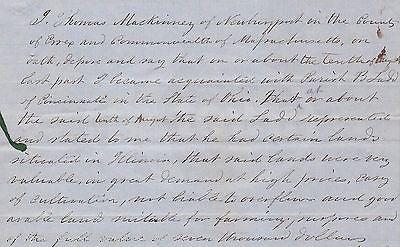 I, Thomas Mackinney of Newburyport in the County
of Essex and Commonwealth of Massachusetts, on
oath, depose and say that on or about the tenth of August
last past I became acquainted with Parish B Ladd
of Cincinnati in the State of Ohio, That at or about
the said tenth of August the said Ladd represented
and stated to me, that he had certain lands
situated in Illinois, that said lands were very
valuable, in great demand at high prices, easy
of cultivation, not liable to overflow and good
arable land suitable for farming purposes and
of the full value of seven thousand dollars